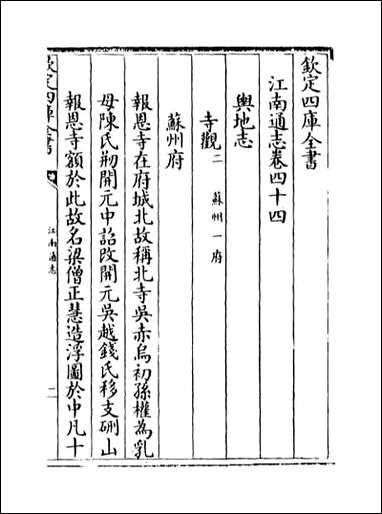 欽定四庫全書
江南通志卷四十四
輿地志
寺觀二 蘇州一府
蘇州府
報恩寺在府城北故稱北寺吳赤烏初孫權為乳
母陳氏剏開元中詔改開元吳越錢氏移支硎山
報恩寺額於此故名梁僧正慧造浮圖於中凡十
欽定四庫全書
江南通志